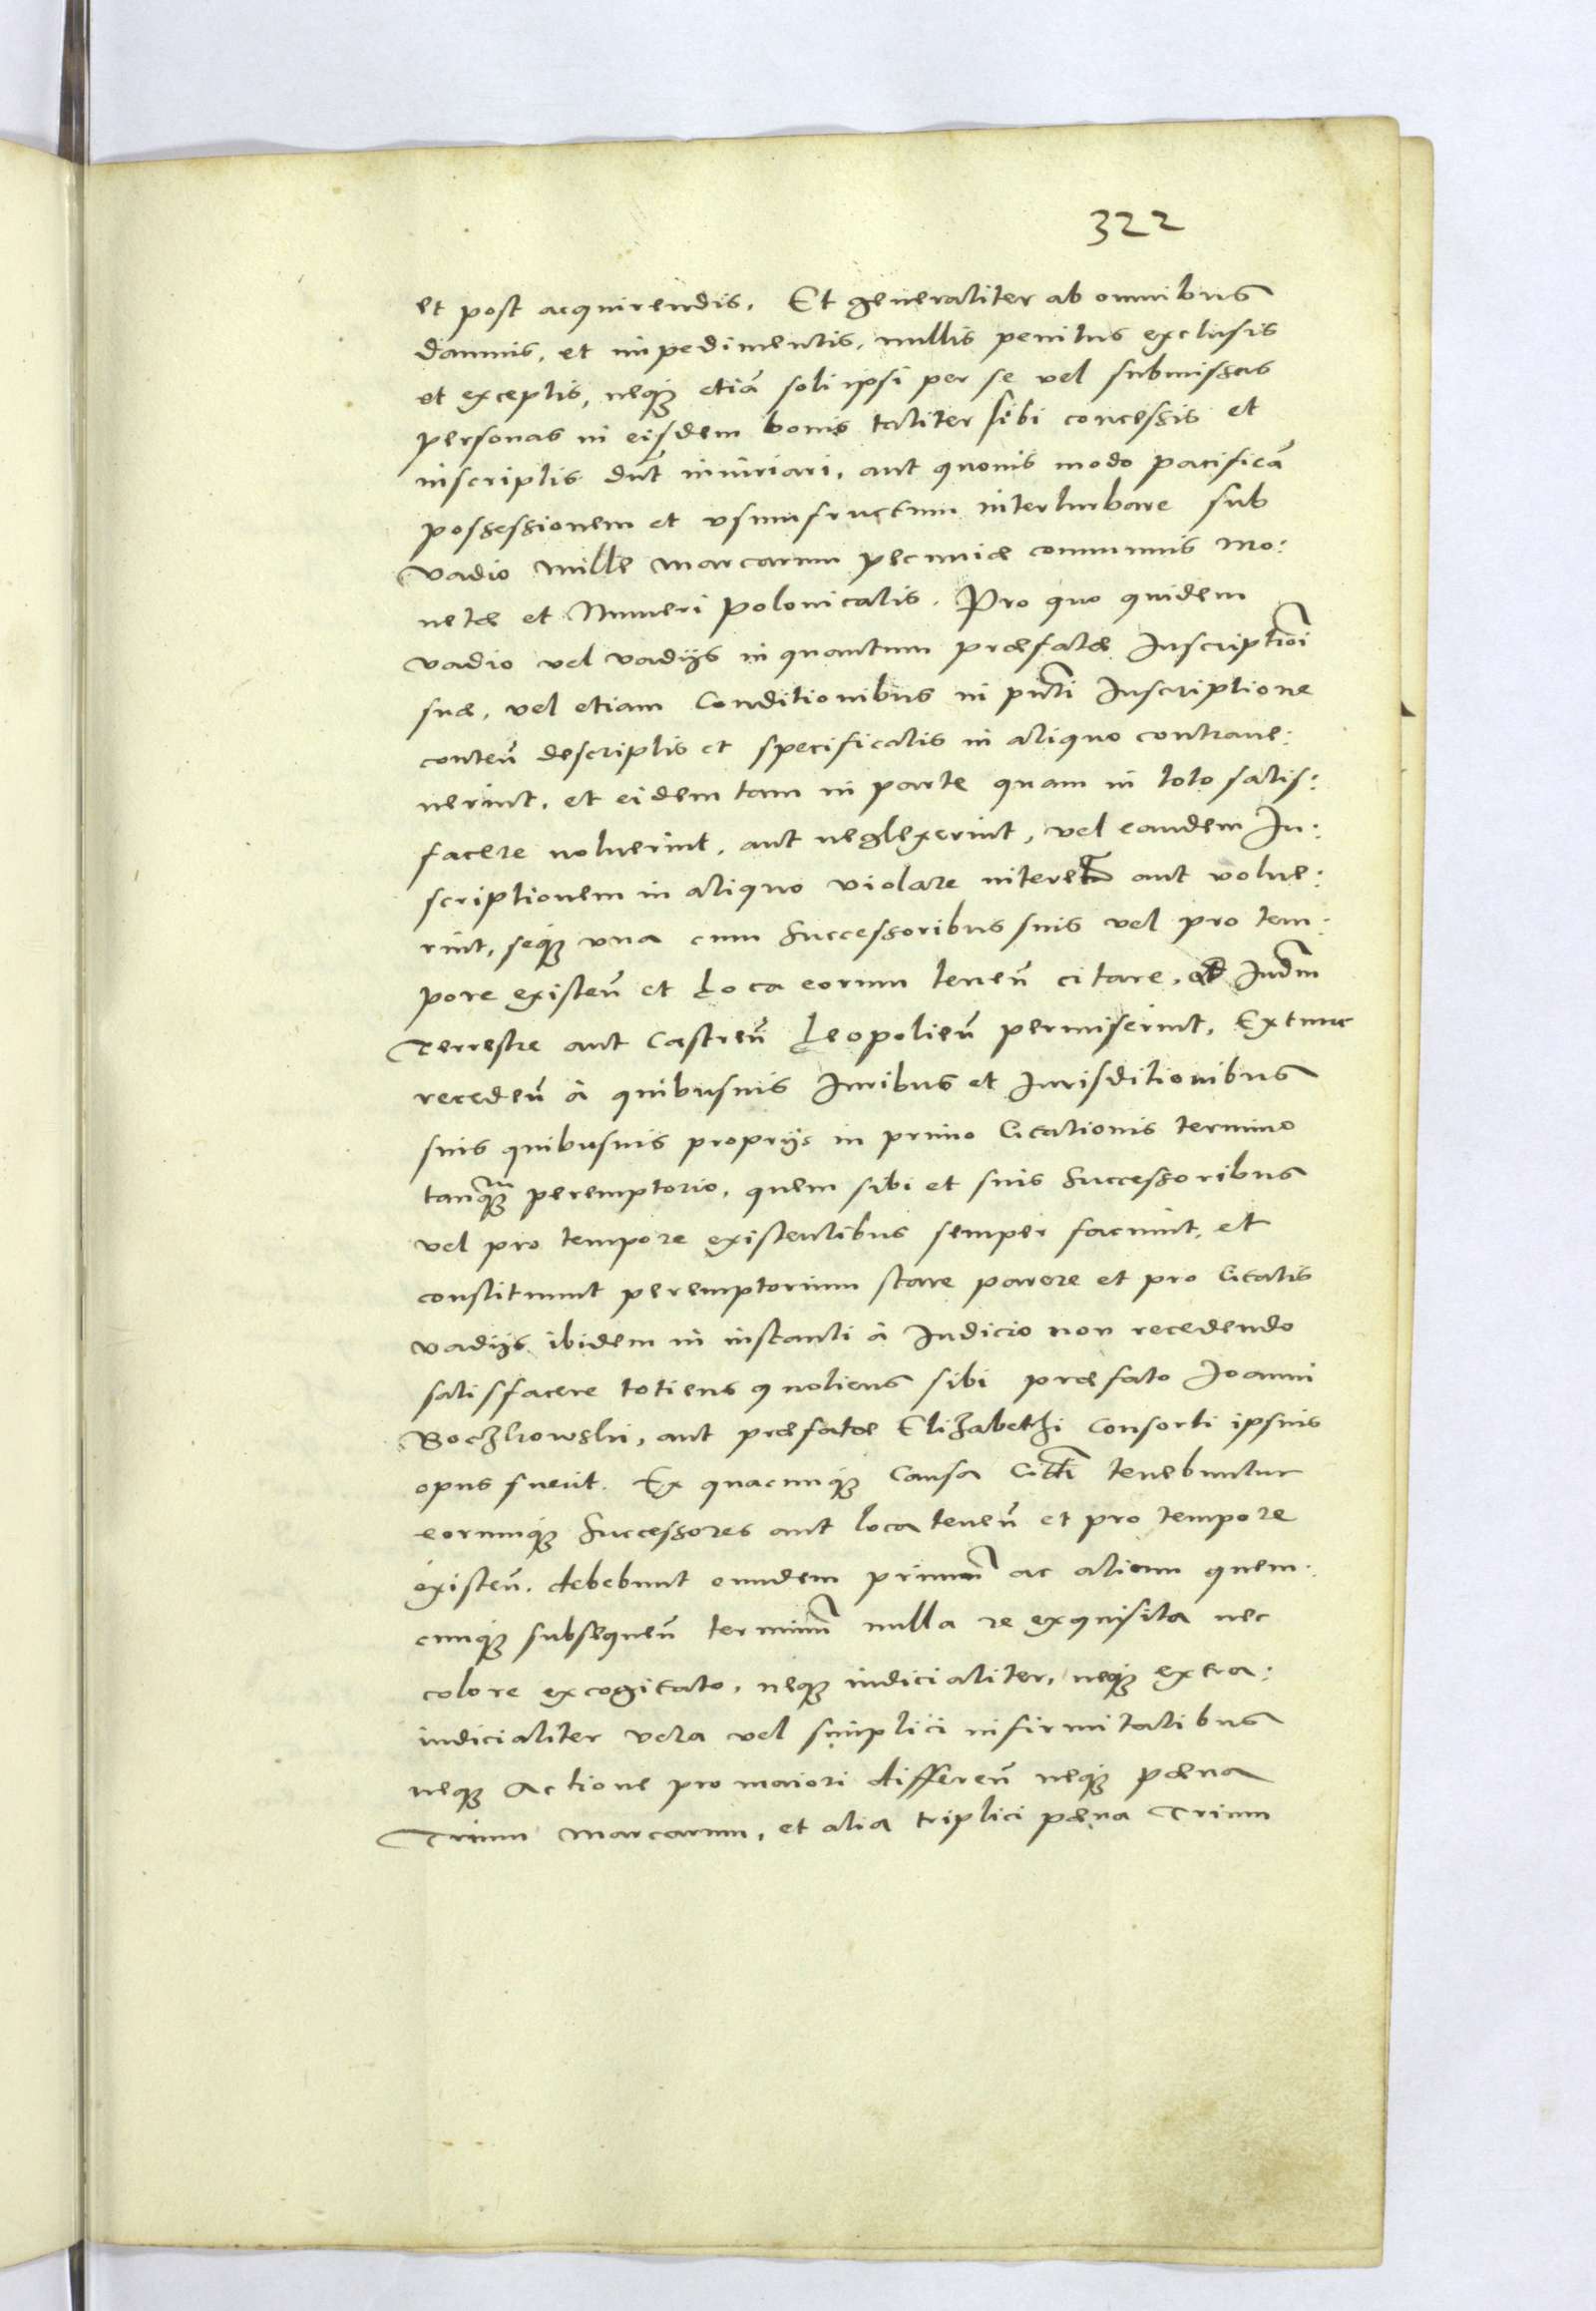 322
et post acquirendis. Et generaliter ab omnibus
damnis, et impedimentis, nullis penitus exclusis
et exceptis, neq₃ etiā soli ipsi per se vel submissas
personas in eisdem bonis taliter sibi concessis et
inscriptis dn̄t iniuriari, aut quouis modo pacificā
possessionem et vsumfructum interturbare sub
vadio mille marcarum pecuniæ communis mo:
netæ et Numeri polonicalis. Pro quo quidem
vadio vel vadijs in quantum præfatæ Inscriptioī
suæ, vel etiam Conditionibus in pn̄ti Inscriptione
conten̄ descriptis et specificatis in aliquo contraue:
nerint, et eidem tam in parte quam in toto satis:
facere noluerint, aut neglexerint, vel eandem In:
scriptionem in aliquo violare niterent̄ aut volue:
rint, seq₃ vna cum Successoribus suis vel pro tem:
pore existen̄ et Loca eorum tenen̄ citare, ad Iudm̄
Terrestre aut Castren̄ Leopolien̄ permiserint, Extunc
receden̄ à quibusuis Iuribus et Iurisditionibus
suis quibusuis proprijs in primo Citationis termino
tanq₃ peremptorio, quem sibi et suis Successoribus
vel pro tempore existentibus semper faciunt, et
constituunt peremptorium stare parere et pro Citatis
vadijs ibidem in instanti à Iudicio non recedendo
satisfacere totiens quotiens sibi præfato Joanni
Boczkowski, aut præfatæ Elizabethi Consorti ipsius
opus fuerit. Ex quacunq₃ Causa Citt̄i tenebuntur
eorumq₃ Successores aut loca tenen̄ et pro tempore
existen̄. debebunt eundem primum̄ ac alium quem:
cunq₃ subsequen̄ terminū nulla re exquisita nec
colore excogitato, neq₃ iudicialiter, neq₃ extra:
iudicialiter vera vel simplici infirmitatibus
neq₃ Actione pro maiori differen̄ neq₃ pæna
Trium marcarum, et alia triplici pæna Trium